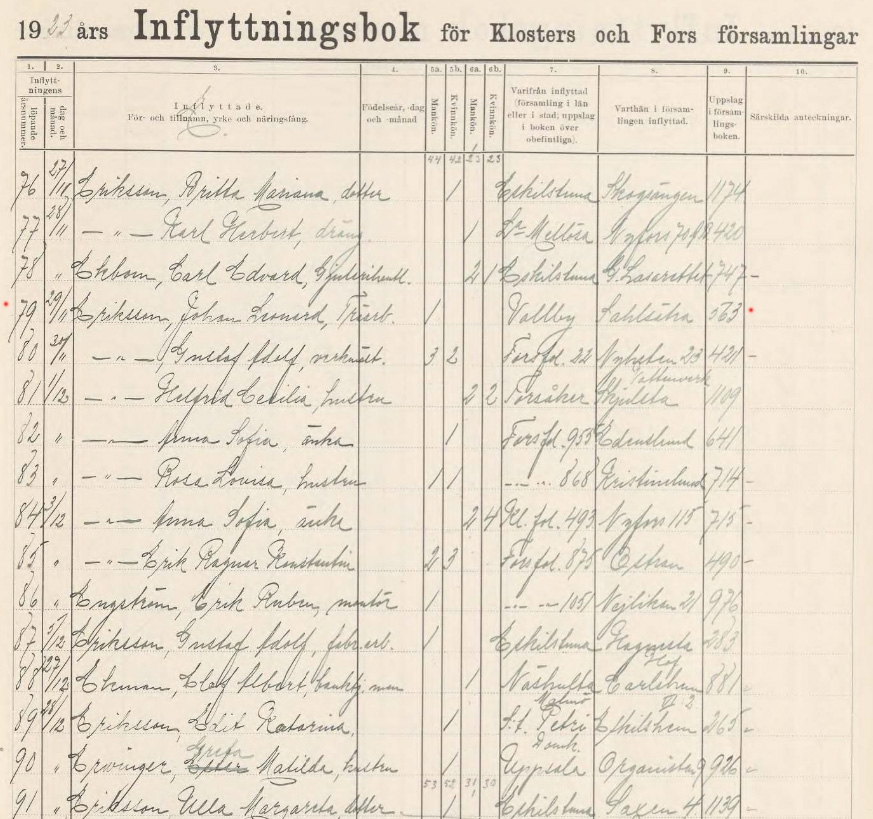 1923 års Inflyttningsbok för Klosters och Fors församlingar
1. 2. 3. 4. 5a. 5b. 6a. 6b. 7. 8. 9. 10.
Inflyttningens
löpande årsnummer.
dag och månad.
Inflyttade.
För- och tillnamn, yrke och näringsfång.
E.
Födelseår, -dag och -månad
Mankön.
Kvinnkön.
Mankön.
Kvinnkön.
Varifrån inflyttad (församling i län eller i stad; uppslag i boken över obefintliga).
Varthän i församlingen inflyttad.
Uppslag i församlingsboken.
Särskilda anteckningar.
44 42 23 23
76 27/11 Eriksson, Britta Mariana, dotter / Eskilstuna Skogsängen 1174
77 28/11 — " — Karl Herbert, dräng / L:a Mellösa Nyfors 420
78 " Ekbom, Carl Edvard, 2 1 Eskilstuna G. Lasarettet 747 -
79 29/11 Eriksson, Johan Leonard, Träarb. / Vallby Sahlsätra 563
80 30/11 — " — , Gustaf Adolf, verkmäst. 3 2 Fors fol. 22 Nyheten 23 421 -
81 1/12 — " — Helfrid Cecilia, hustru 2 2 Torsåker Skjulsta Vattenverk 1109
82 " — " — Anna Sofia, änka / Fors fol. 955 Edenslund 641
83 " — " — Rosa Lovisa, hustru / / — " — " 868 Kristinelund 714 -
84 3/12 — " — Anna Sofia, änka 2 4 Kl. fol. 493 Nyfors 115 715 -
85 " — " — Erik Ragnar Konstantin 2 3 Fors fol. 875 Östran 490 -
86 " Engström, Erik Ruben, montör / — " — 1051 Nejlikan 21 976
87 5/12 Eriksson, Gustaf Adolf, fabr.arb. / Eskilstuna Hagnesta 283
88 27/12 Ekman, Elof Albert, banktj.man / Näshulta Carlshem 881 -
89 28/12 Eriksson, Edit Katarina, / Malmö S:t Petri Eskilshem 2 265 -
90 " Ervinger, Greta Ester Matilda, hustru / Domk. Uppsala Organisten 9 926 -
53 52 31 30
91 " Eriksson, Ulla Margareta, dotter / Eskilstuna Saxen 4 1139 -